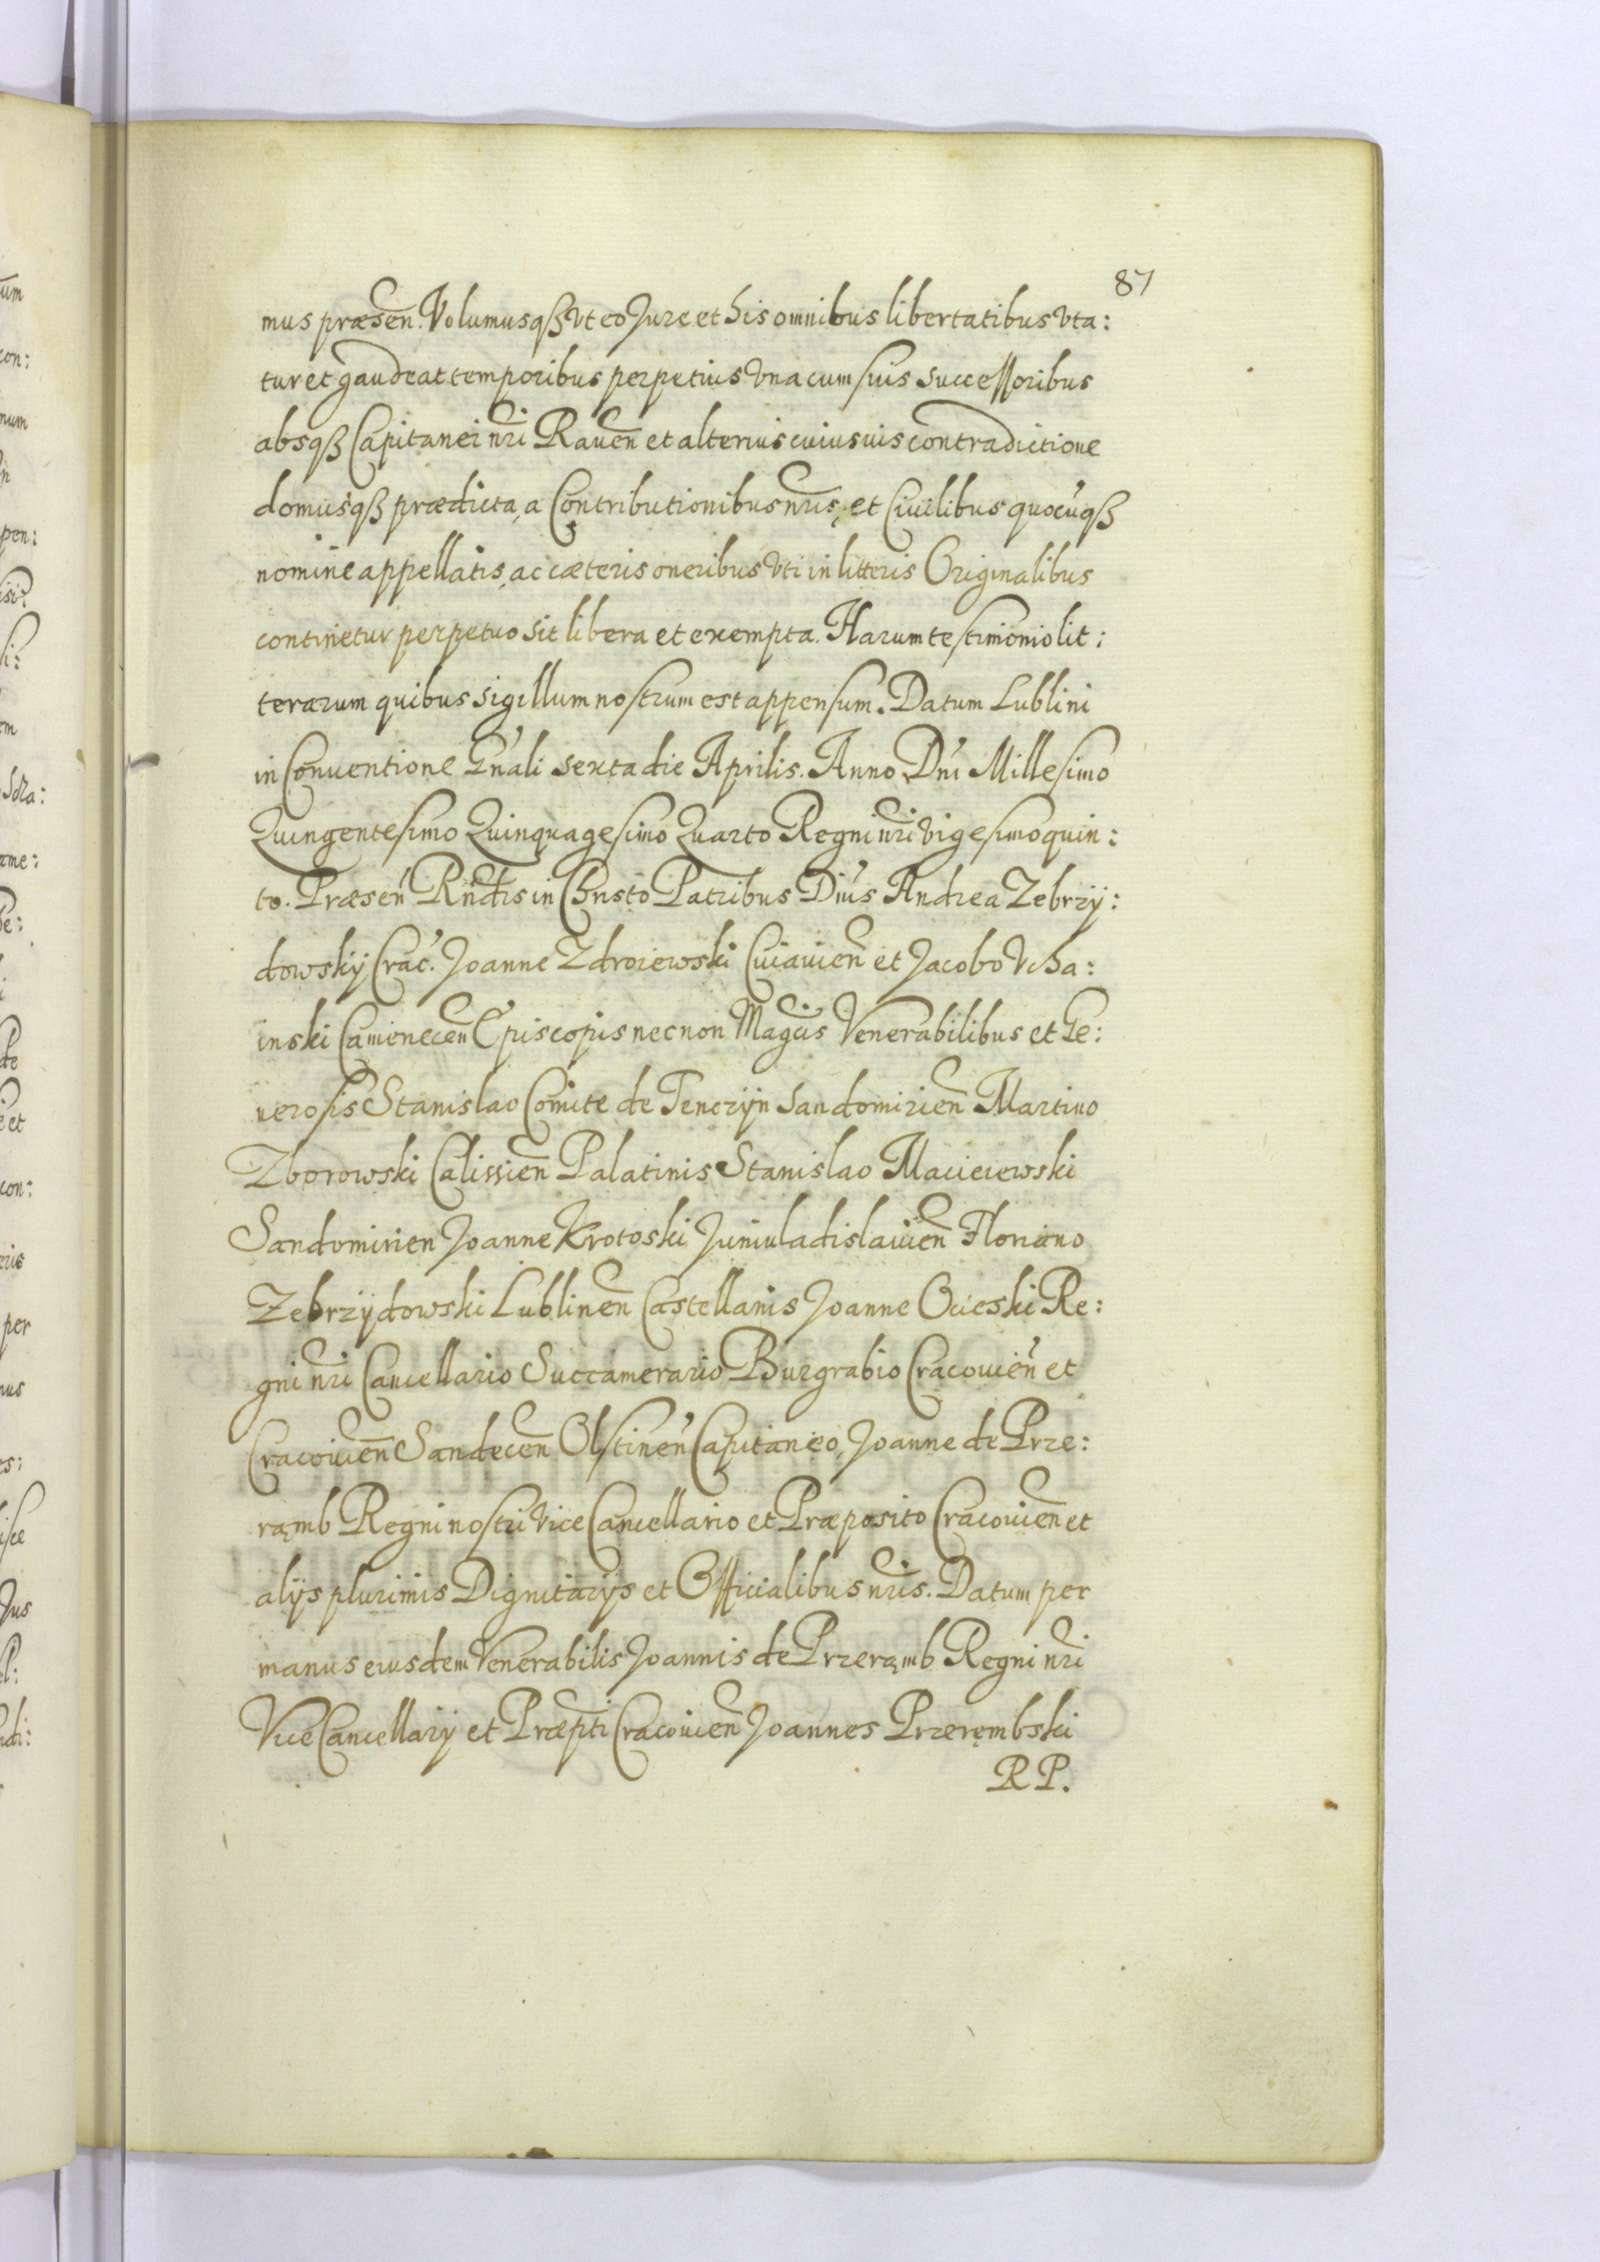 87
mus præsen. Volumusqꝫ vt eo Jure et his omnibus libertatibus vta:
tur et gaudeat temporibus perpetius vna cum suis successoribus
absqꝫ Capitanei nri Rauen et alterius cuiusuis contradictione
domusqꝫ prædicta, a Contributionibus nris, et Ciuilibus quocuqꝫ
nomine appellatis, ac cæteris oneribus vti in litteris Originalibus
continetur perpetuo sit libera et exempta. Harum testimonio lit:
terarum quibus sigillum nostrum est appensum. Datum Lublini
in Conuentione Gnali sexta die Aprilis. Anno Dni Millesimo
Quingentesimo Quinquagesimo Quarto Regni nri vigesimo quin:
to. Præsen Rndis in Christo Patribus Dnis Andrea Zebrzy:
dowskij Crac. Joanne Zdroiewski Cuiauien et Jacobo Vcha:
inski Camenecen Episcopis nec non Magcis Venerabilibus et Ge:
nerosis Stanislao Comite de Tenczyn Sandomirien Martino
Zborowski Calissien Palatinis Stanislao Macieiewski
Sandomirien Joanne Krotoski Juniuladislauien Floriano
Zebrzydowski Lublinen Castellanis Joanne Ocieski Re:
gni nri Cancellario Succamerario Burgrabio Cracouien et
Cracouien Sandecen Olstinen Capitaneo, Joanne de Prze:
rąmb Regni nostri Vice Cancellario et Præposito Cracouien et
alijs plurimis Dignitarijs et Officialibus nris. Datum per
manus eiusdem Venerabilis Joannis de Przerąmb Regni nri
Vice Cancellarij et Præpti Cracouien Joannes Przerembski
R P.